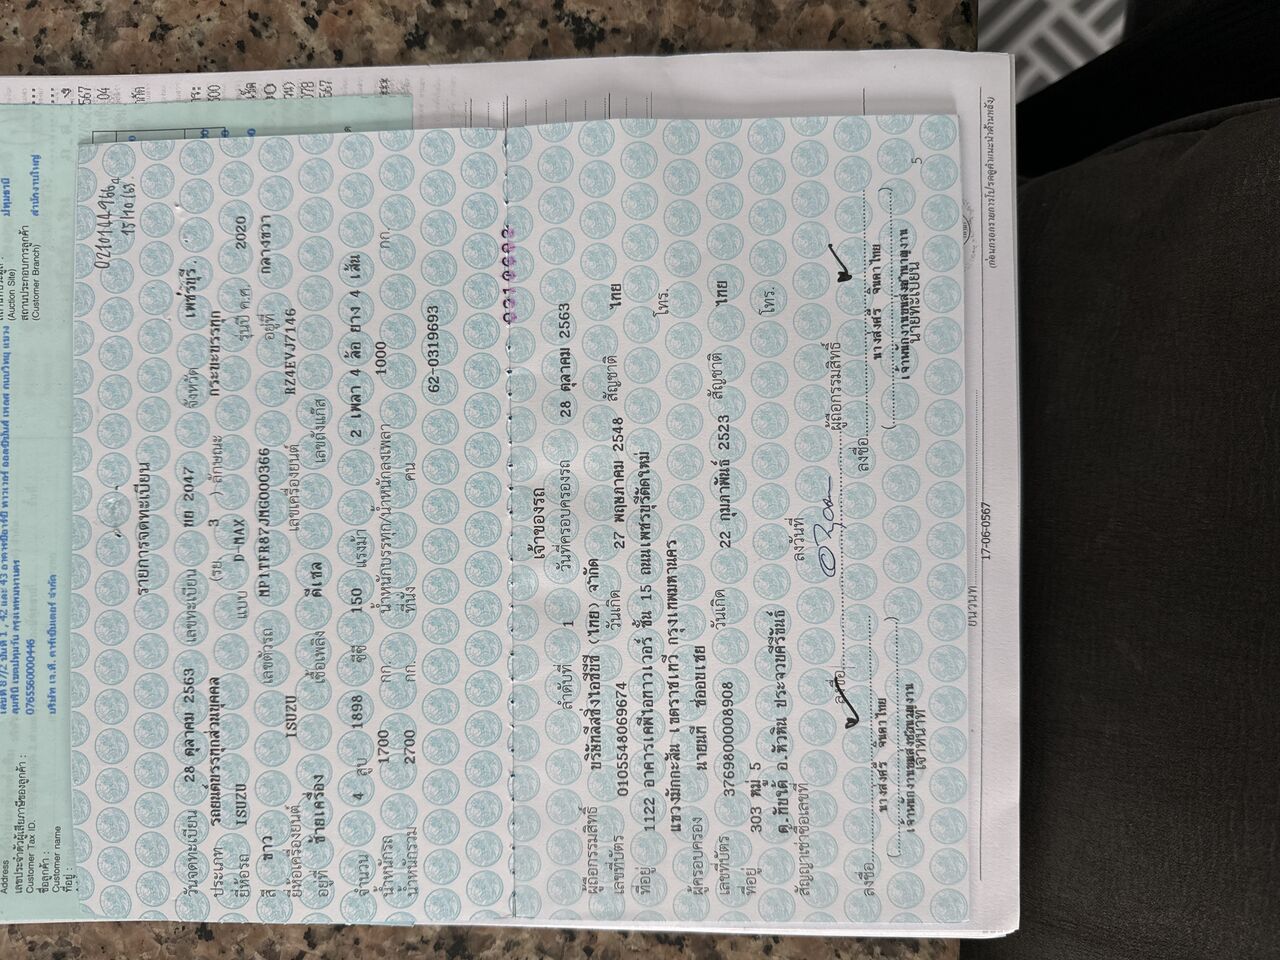 0210144966
15/10/67
รายการจดทะเบียน
วันจดทะเบียน 28 ตุลาคม 2563 เลขทะเบียน ขย 2047 จังหวัด เพชรบุรี
ประเภท รถยนต์บรรทุกส่วนบุคคล (รย. 3 ) ลักษณะ กระบะบรรทุก
ยี่ห้อรถ ISUZU แบบ D-MAX รุ่นปี ค.ศ. 2020
สี ขาว เลขตัวรถ MP1TFR87JMG000366 อยู่ที่ กลางขวา
ยี่ห้อเครื่องยนต์ ISUZU เลขเครื่องยนต์ RZ4EVJ7146
อยู่ที่ ซ้ายเครื่อง เชื้อเพลิง ดีเซล เลขถังแก๊ส
จำนวน 4 สูบ 1898 ซีซี 150 แรงม้า 2 เพลา 4 ล้อ ยาง 4 เส้น
น้ำหนักรถ 1700 กก. น้ำหนักบรรทุก/น้ำหนักลงเพลา 1000 กก.
น้ำหนักรวม 2700 กก. ที่นั่ง คน
62-0319693
เจ้าของรถ
ลำดับที่ 1 วันที่ครอบครองรถ 28 ตุลาคม 2563
ผู้ถือกรรมสิทธิ์ บริษัทลีสซิ่งไอซีบีซี (ไทย) จำกัด
เลขที่บัตร 0105548069674 วันเกิด 27 พฤษภาคม 2548 สัญชาติ ไทย
ที่อยู่ 1122 อาคารเคพีไอทาวเวอร์ ชั้น 15 ถนนเพชรบุรีตัดใหม่
แขวงมักกะสัน เขตราชเทวี กรุงเทพมหานคร โทร.
ผู้ครอบครอง นายนที ช่ออบเชย
เลขที่บัตร 3769800008908 วันเกิด 22 กุมภาพันธ์ 2523 สัญชาติ ไทย
ที่อยู่ 303 หมู่ 5
ต.ทับใต้ อ.หัวหิน ประจวบคีรีขันธ์ โทร.
สัญญาเช่าซื้อเลขที่ ลงวันที่
ลงชื่อ ผู้ถือกรรมสิทธิ์
ลงชื่อ ลงชื่อ
นางสงศรี จินดาไทย นางสงศรี จินดาไทย
เจ้าหน้าที่ นายทะเบียน
5
ปทุมธานี
(Auction Site)
สถานประกอบการลูกค้า สำนักงานใหญ่
(Customer Branch)
Address
เลขประจำตัวผู้เสียภาษีของลูกค้า : 0765560000446
Customer Tax ID.
ชื่อลูกค้า : บริษัท เจ.ที. คาร์เซ็นเตอร์ จำกัด
Customer name
ที่อยู่ :
17-06-0567